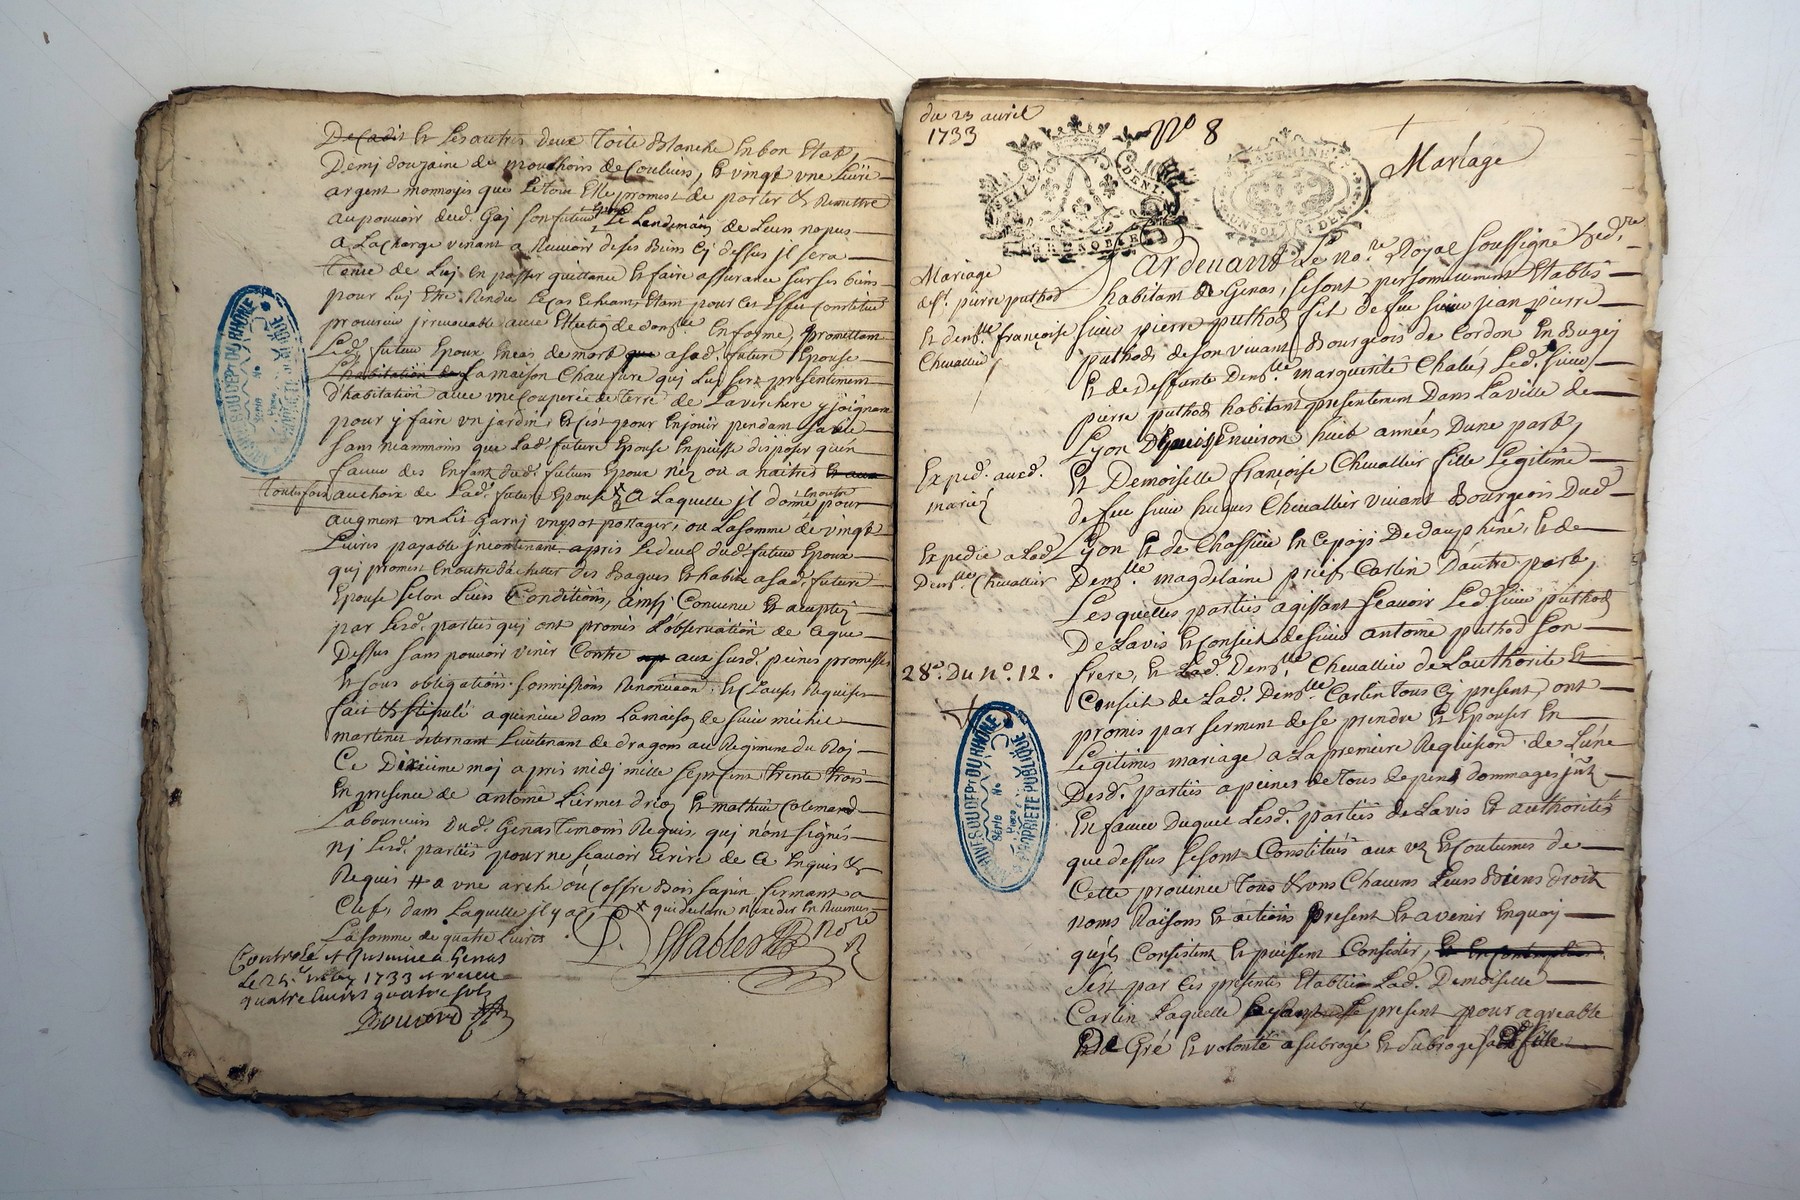 De Cadis Et Les autres deux Toile Blanche En bon Etat,
Demj douzaine de mouchoirs de Couleurs, Et vingt une Livre
argent monnoyé que Le tout Elle promet de porter & Remettre
au pouvoir dud. Gaj son futur Epoux Le Lendemain de Leurs nopces
A La charge venant a Recevoir de ses Biens Cj dessus jl sera
Tenu de Luj En passer quittance Et faire assurance sur ses biens
pour Luj Etre Rendu Le Cas Echeant, Etant pour Cet Effet Constitué
procureur jrrevocable avec Election de domlle En forme, promettant
Led. futur Epoux En cas de mort a sad. future Epouse
L'habitation de La maison Chaufure quj Luj sert presentement
d'habitation avec une Couperée de terre de La verchere y joignant
pour y faire un jardin, Et c'est pour En jouir pendant sa vie
sans neanmoins que Lad. future Epouse En puisse disposer qu'en
faveur des Enfans dud. futur Epoux nez ou a naitre Et aux
Toutefois au choix de Lad. future Epouse A Laquelle jl donne En outre pour
augment un Lit Garnj un pot pottager, ou La somme de vingt
Livres payable jncontinent apres Le deud dud. futur Epoux
quj promet En outre d'achetter des Bagues Et habits a sad. future
Epouse selon Leurs Conditions, ainsj Convenu Et accepté
par Lesd. parties quj ont promis L'observation de Ce que
Dessus sans pouvoir venir Contre aux susd. peines promesses
Et sous obligations. soumissions Renonciaon. Et Clauses Requises
fait & stipulé a queniere dans La maison de sieur michel
martinet deternant Lieutenant de dragons au Regiment du Roj
Ce Dixieme maj apres midj mille sept cent trente trois
En presence de antoine Liermet dric Et mathieu Colemard
Laboureurs dud. Genas Temoins Requis, quj n'ont signés
nj Lesd. parties pour ne scavoir Ecrire de Ce Enquis &
Requis # a une arche ou Coffre Bois sapin fermant a
Clef, dans Laquelle jl y a x qui declare n'exceder En Revenus
La somme de quatre Livres.
Controlé et Jnsinué a Genas
Le 24e may 1733 et receu
quatre livres quatre sols
Bouvard
Nore
ARCHIVES DU DEPT DU RHÔNE
Serie No
Piece
PROPRIÉTÉ PUBLIQUE
du 23 avril
1733
No 8
Mariage
GRENOBLE
Pardevant Le Nore. Royal soussigné hedre.
habitant de Genas, se sont personnellement Etablis
sieur pierre puthod fils de feu sieur jean pierre
puthod de son vivant Bourgeois de Cordon En Bugej
Et de deffunte Demlle. marguerite Chalé, Led. sieur
pierre puthod habitant presentement Dans La ville de
Lyon Depuis Environ huit années D'une part,
Et Demoiselle françoise Chevallier fille Legitime
de feu sieur hugues Chevallier vivant Bourgeois Dud.
Lyon Et de Chassieu En Ce pays De dauphiné, Et de
Demlle. magdelaine prief Carlin D'autre part,
Lesquelles parties agissant scavoir Led. sieur puthod
De L'avis Et Conseil de sieur antoine puthod son
frere, Et Lad. Demlle. Chevallier de L'authorité Et
Conseil de Lad. Demlle Carlin Tous Cj present, ont
promis par serment de se prendre Et Epouser En
Legitimes mariage a La premiere Requision de L'une
Desd. parties a peines de Tous depens dommages jntz
En faveur Duquel Lesd. parties de L'avis Et authorités
que dessus se sont Constitués aux uz Et Coutumes de
Cette province Tous & uns Chacuns Leurs Biens droits
noms Raisons Et actions present Et avenir En quoj
qu'ils Consistent Et puissent Consister,
s'est par Ces presentes Etablie Lad. Demoiselle
Carlin Laquelle present pour agreable
De Gré Et volonté a subrogé Et subroge sad. fille
Mariage
de sr. pierre puthod
Et demlle françoise
Chevallier
Exped. aud.
mariez
Expedié a Lad.
Demlle Chevallier
28e. Du No. 12.
ARCHIVES DU DEPT DU RHÔNE
Serie No
Piece
PROPRIÉTÉ PUBLIQUE